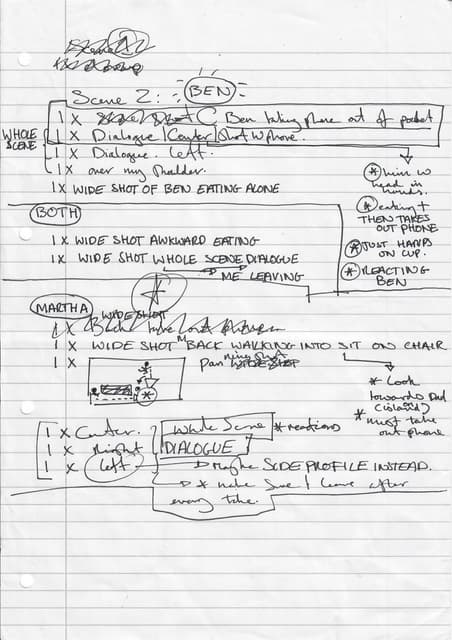 Scene 2: BEN
WHOLE SCENE
1 X Ben taking phone out of pocket
1 X Dialogue / Center / Shot w phone.
1 X Dialogue. left.
1 X over my shoulder.
1 X WIDE SHOT OF BEN EATING ALONE
* him w head in hands.
* eating + THEN TAKES OUT PHONE
* JUST HANDS ON CUP.
* REACTING BEN
BOTH
1 X WIDE SHOT AWKWARD EATING
1 X WIDE SHOT WHOLE SCENE DIALOGUE
→ ME LEAVING
MARTHA
WIDE SHOT
1 X
1 X WIDE SHOT M BACK WALKING INTO SIT ON CHAIR
1 X Pan
* Look towards Dad (island)
* must take out phone
1 X Center.
1 X Right
1 X left
Whole Scene DIALOGUE
* reactions
→ Maybe SIDE PROFILE INSTEAD.
→ * make sure I leave after every take.